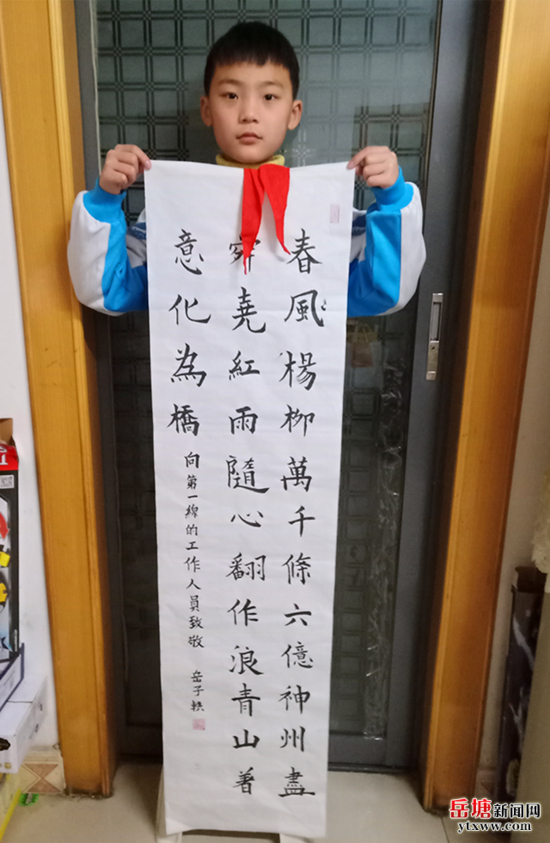 春風楊柳萬千條六億神州盡
舜堯紅雨隨心翻作浪青山着
意化為橋
向第一線的工作人員致敬 岳子軼
岳塘新闻网
ytxww.com